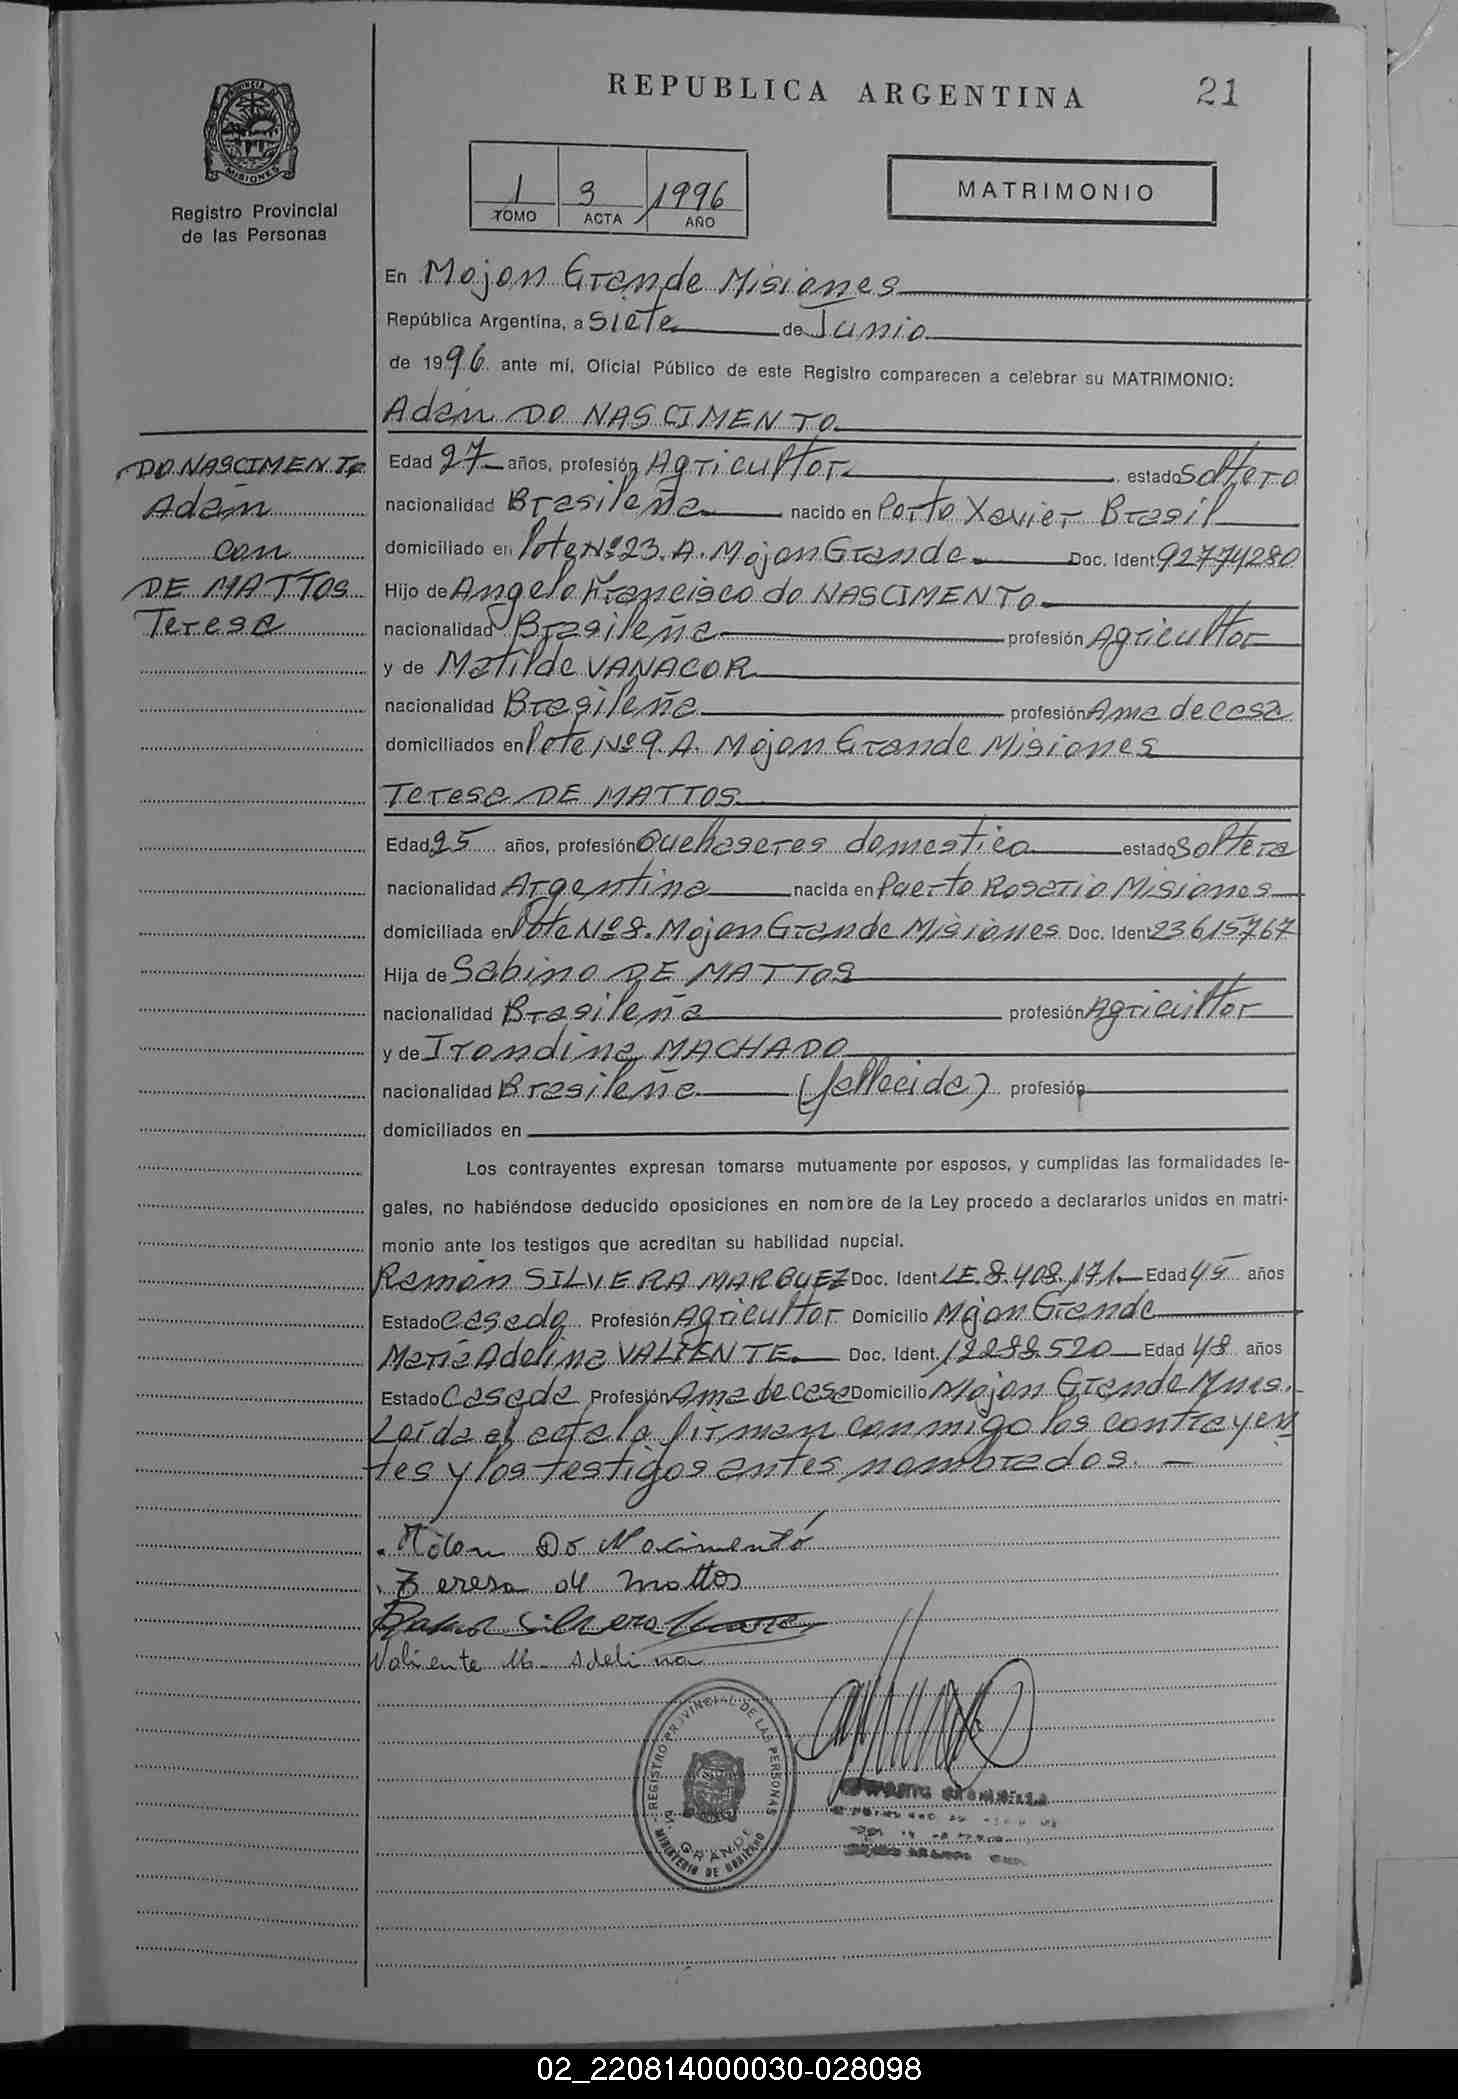 REPUBLICA ARGENTINA
21
PROVINCIA DE
MISIONES
Registro Provincial
de las Personas
1 3 1996
TOMO ACTA AÑO
MATRIMONIO
En Mojon Grande Misiones
República Argentina, a Siete de Junio
de 1996 ante mí, Oficial Público de este Registro comparecen a celebrar su MATRIMONIO:
Adán DO NASCIMENTO
DO NASCIMENTO
Adán
con
DE MATTOS
Teresa
Edad 27 años, profesión Agricultor estado Soltero
nacionalidad Brasileña nacido en Porto Xavier Brasil
domiciliado en lote Nº 23. A. Mojon Grande Doc. Ident. 92774280
Hijo de Angelo Francisco do NASCIMENTO
nacionalidad Brasileña profesión Agricultor
y de Matilde VANACOR
nacionalidad Brasileña profesión Ama de casa
domiciliados en lote Nº 9. A. Mojon Grande Misiones
Teresa DE MATTOS
Edad 25 años, profesión Quehaseres domestico estado Soltera
nacionalidad Argentina nacida en Puerto Rosario Misiones
domiciliada en lote Nº 8. Mojon Grande Misiones Doc. Ident 23615767
Hija de Sabino DE MATTOS
nacionalidad Brasileña profesión Agricultor
y de Irondina MACHADO
nacionalidad Brasileña (fallecida) profesión
domiciliados en
Los contrayentes expresan tomarse mutuamente por esposos, y cumplidas las formalidades le-
gales, no habiéndose deducido oposiciones en nombre de la Ley procedo a declararlos unidos en matri-
monio ante los testigos que acreditan su habilidad nupcial.
Ramón SILVERA MARQUEZ Doc. Ident LE. 8.408.171. Edad 45 años
Estado Casado Profesión Agricultor Domicilio Mojon Grande
María Adelina VALIENTE Doc. Ident. 12288520 Edad 48 años
Estado Casada Profesión Ama de casa Domicilio Mojon Grande Mnes.
Leída el acta la firman conmigo los contrayen
tes y los testigos antes nombrados. -
Adan Do Nacimentó
Teresa de Mattos
Ramon Silvera
Valiente M. Adelina
REGISTRO PROVINCIAL DE LAS PERSONAS
M. GRANDE
MINISTERIO DE GOBIERNO
02_220814000030-028098